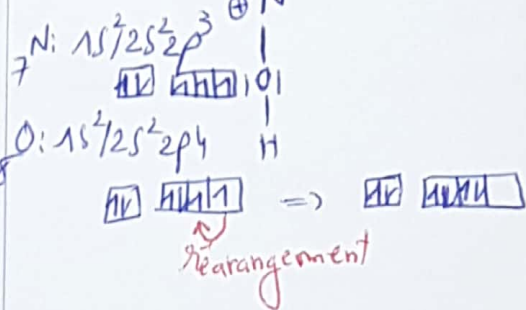 ⊕ N
₇N: 1s²/2s²2p³
|O|
₈O: 1s²/2s²2p4
H
=>
rearangement